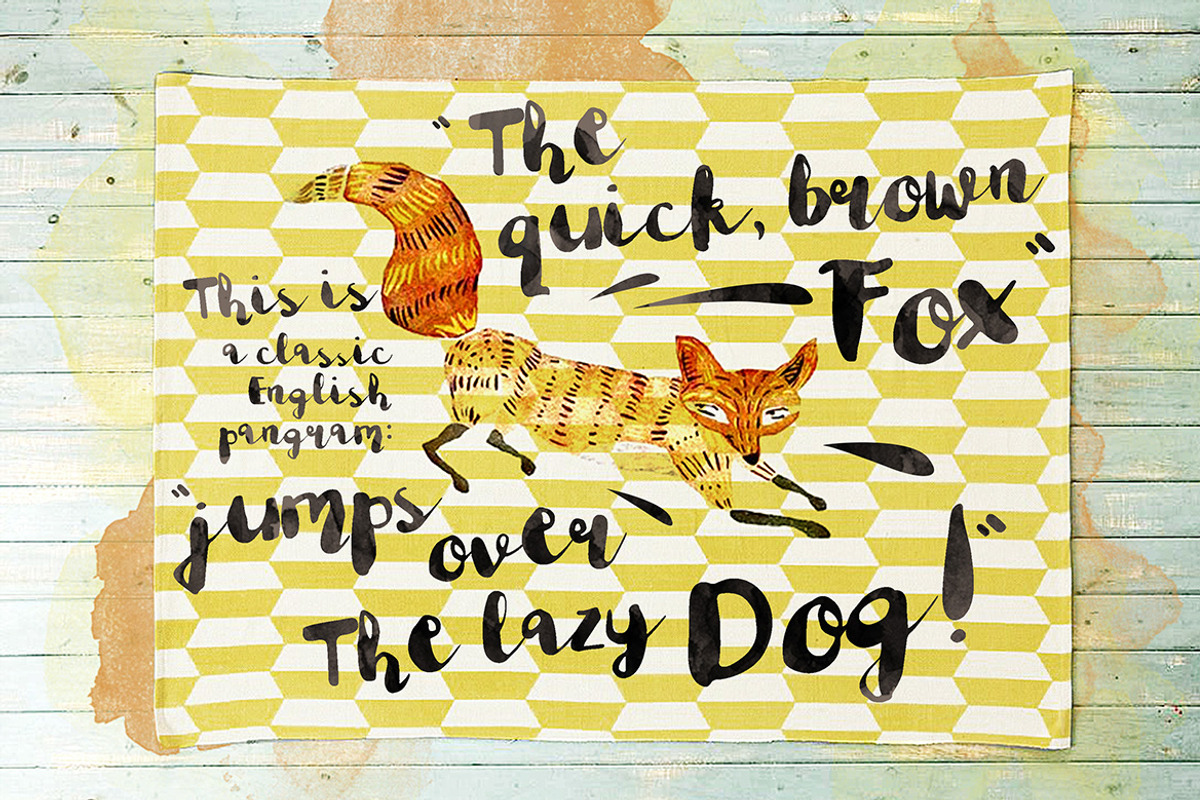 "The
quick, brown
Fox"
This is
a classic
English
pangram:
"jumps
over
The lazy Dog!"